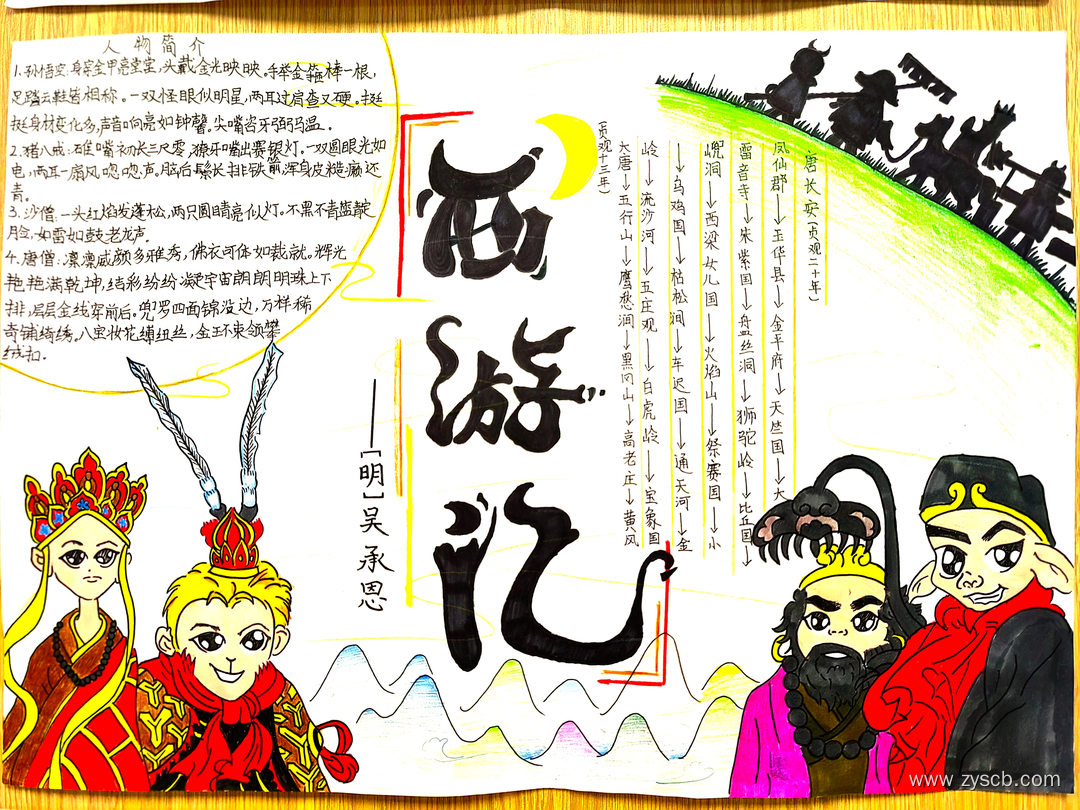 人物简介
1.孙悟空:身穿金甲亮堂堂,头戴金光映映。手举金箍棒一根,
足踏云鞋皆相称。一双怪眼似明星,两耳过肩查又硬。挺
挺身材变化多,声音响亮如钟磬。尖嘴咨牙弼马温。
2.猪八戒:碓嘴初长三尺零,獠牙嘴出赛银灯。一双圆眼光如
电,两耳一扇风唿唿声。脑后鬃长排铁箭,浑身皮糙癞还
青。
3.沙僧:一头红焰发蓬松,两只圆睛亮似灯。不黑不青蓝靛
脸,如雷如鼓老龙声.
4.唐僧:凛凛威颜多雅秀,佛衣可体如裁就。辉光
艳艳满乾坤,结彩纷纷凝宇宙朗朗明珠上下
排,层层金线穿前后。兜罗四面锦沿边,万样稀
奇铺绮绣,八宝妆花缚纽丝,金环束领攀
绒扣.
西游记
——[明]吴承恩
(贞观十三年)
大唐→五行山→鹰愁涧→黑风山→高老庄→黄风
岭→流沙河→五庄观→白虎岭→宝象国
→乌鸡国→枯松涧→车迟国→通天河→金
洞→西梁女儿国→火焰山→祭赛国→小
雷音寺→朱紫国→盘丝洞→狮驼岭→比丘国→
凤仙郡→玉华县→金平府→天竺国→大
唐长安(贞观二十年)
www.zyscb.com